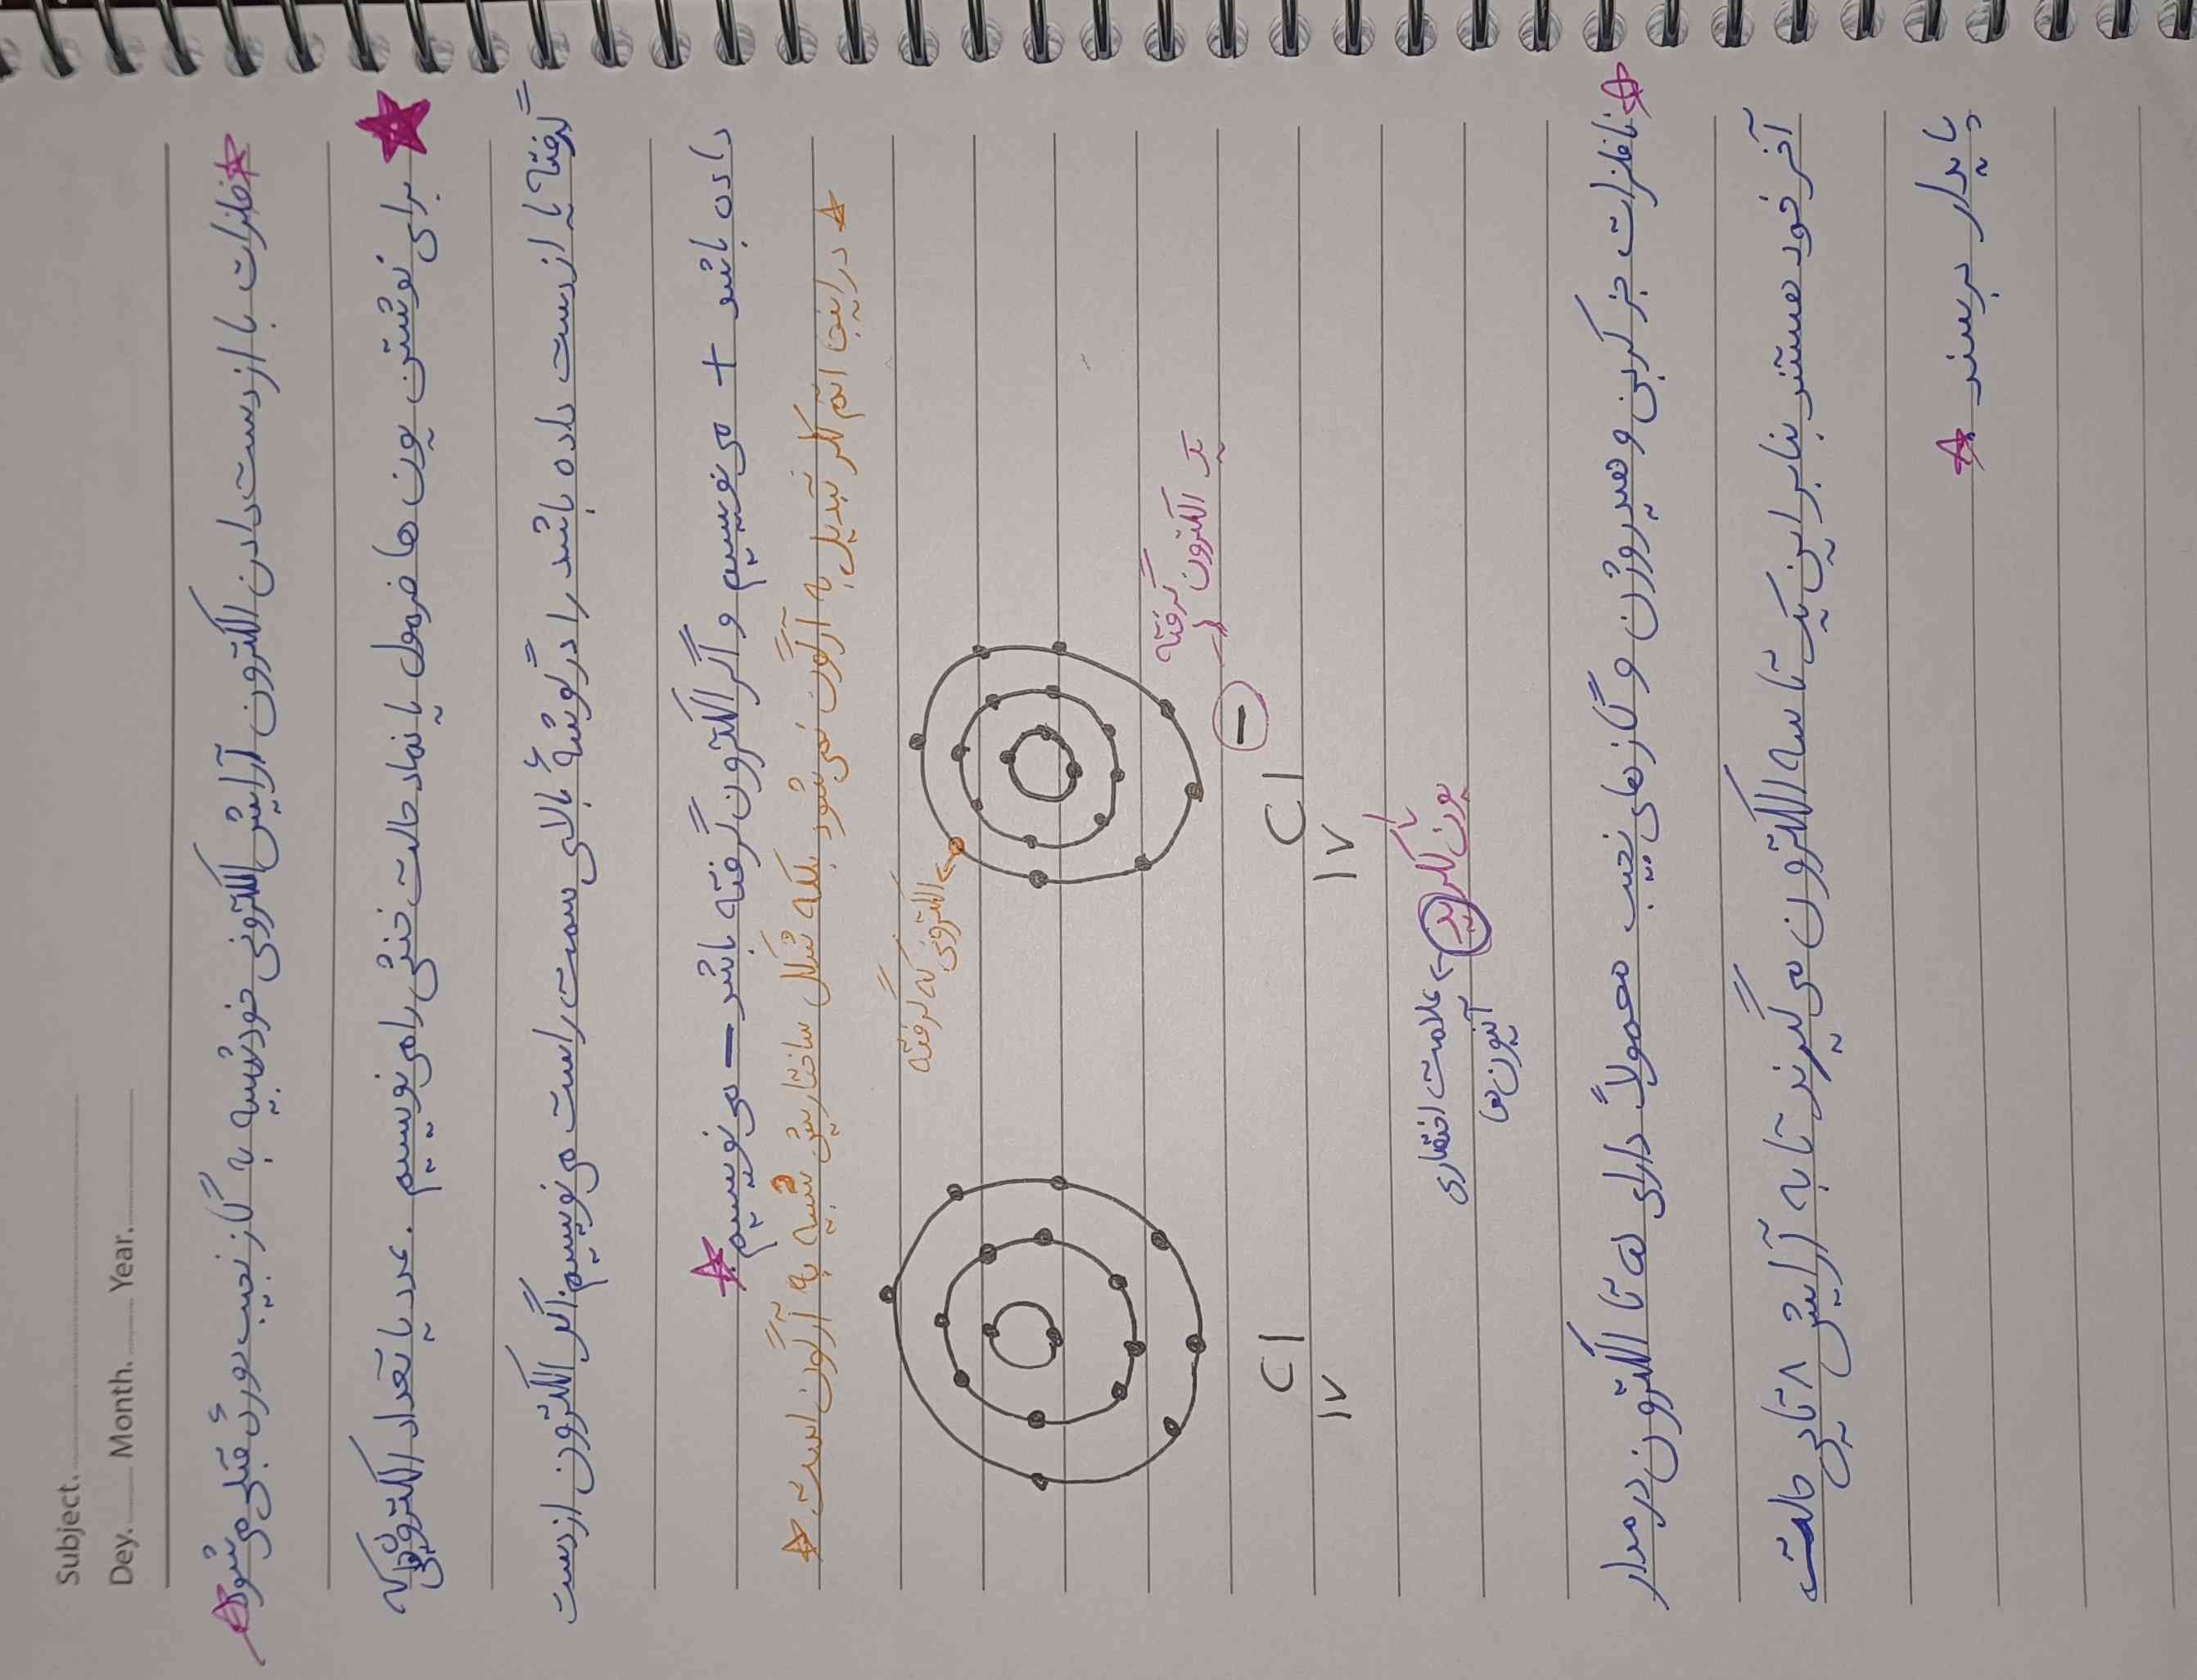 Subject.
Dey. Month. Year.
فلزات با از دست دادن الکترون آرایش الکترونی خود شبیه به گاز نجیب دورهٔ قبلی می شود
برای نوشتن یون ها فرمول یا نماد حالت خنثی را می نویسیم . عدد یا تعداد الکترونهایی که
گرفته یا از دست داده باشد را در گوشهٔ بالای سمت راست می نویسیم. اگر الکترون از دست
داده باشد + می نویسیم و اگر الکترون گرفته باشد – می نویسیم
در اینجا اتم کلر تبدیل به آرگون نمی شود بلکه شکل ساختاریش شبیه به آرگون است
الکترونی که گرفته
یک الکترون گرفته
Cl –
۱۷
Cl
۱۷
یون کلرید
علامت اختصاری
آنیون ها
نافلزات جز کربن و هیدروژن و گازهای نجیب معمولاً دارای ۵ تا الکترون در مدار
آخر خود هستند بنابراین یک تا سه الکترون می گیرند تا به آرایش ۸ تایی حالت
پایدار برسند